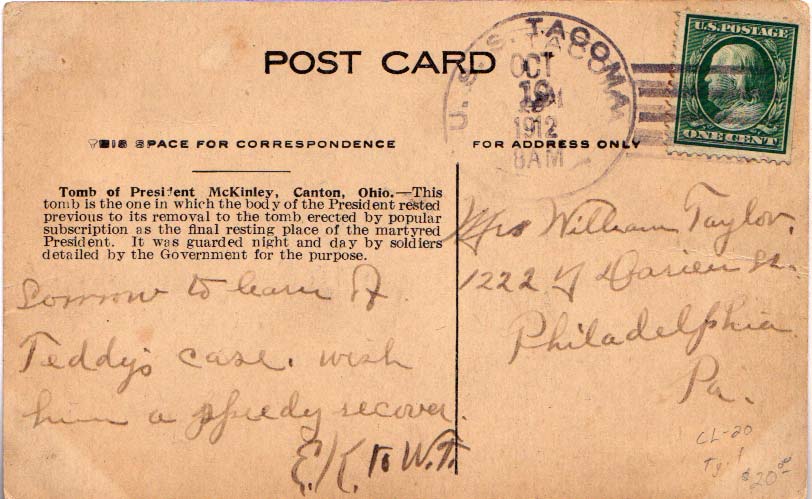 POST CARD
U.S.S. TACOMA
OCT
19
1912
8AM
U.S. POSTAGE
ONE CENT
THIS SPACE FOR CORRESPONDENCE
FOR ADDRESS ONLY
Tomb of President McKinley, Canton, Ohio.—This
tomb is the one in which the body of the President rested
previous to its removal to the tomb erected by popular
subscription as the final resting place of the martyred
President. It was guarded night and day by soldiers
detailed by the Government for the purpose.
Sorrow to learn of
Teddy's case. wish
him a speedy recover.
E.K. to W.T.
Mrs William Taylor.
1222 Darien St.
Philadelphia
Pa.
CL-20
$20.00